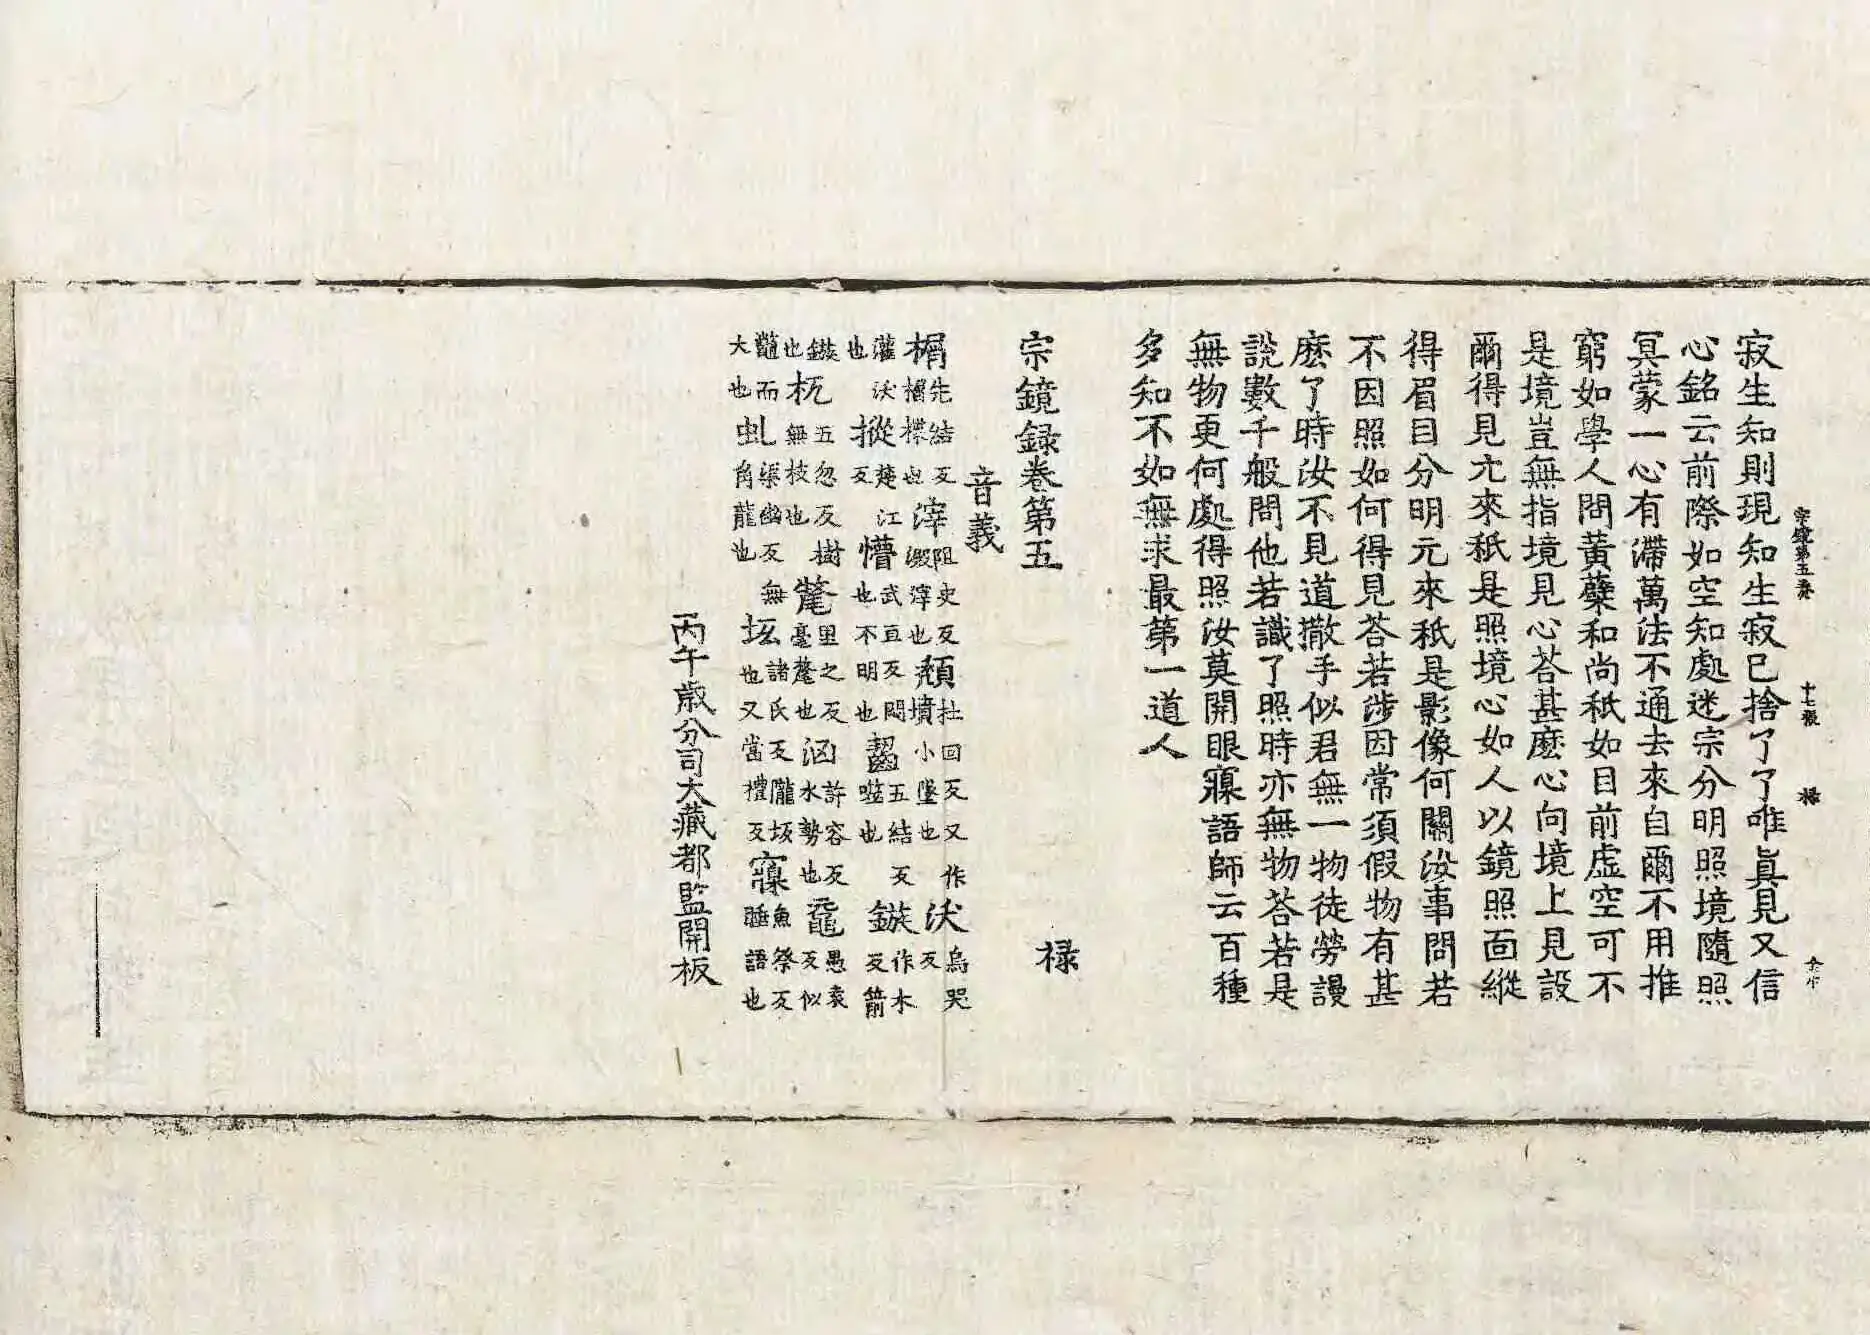 宗鏡第五卷 十七張 祿
寂生知則現知生寂已捨了了唯眞見又信
心銘云前際如空知處迷宗分明照境隨照
冥蒙一心有滯萬法不通去來自爾不用推
窮如學人問黃蘗和尚秖如目前虛空可不
是境豈無指境見心荅甚麽心向境上見設
爾得見元來秖是照境心如人以鏡照面縱
得眉目分明元來秖是影像何關汝事問若
不因照如何得見荅若涉因常須假物有甚
麽了時汝不見道撒手似君無一物徒勞謾
說數千般問他若識了照時亦無物荅若是
無物更何處得照汝莫開眼寱語師云百種
多知不如無求最第一道人
宗鏡録卷第五 祿
音義
榍先結反榍楪也滓阻史反澱滓也頹杜回反又作墳小墜也沃烏哭反
灌沃也摐楚江反懵武亘反悶也不明也齧五結反噬也鏃作木反箭
鏃也杌五忽反樹無枝也氂里之反毫氂也洶許容反水勢也黿愚袁反似
鼈而大也虬渠幽反無角龍也坻諸氏反隴坂也又當禮反寱魚祭反睡語也
丙午歲分司大藏都監開板